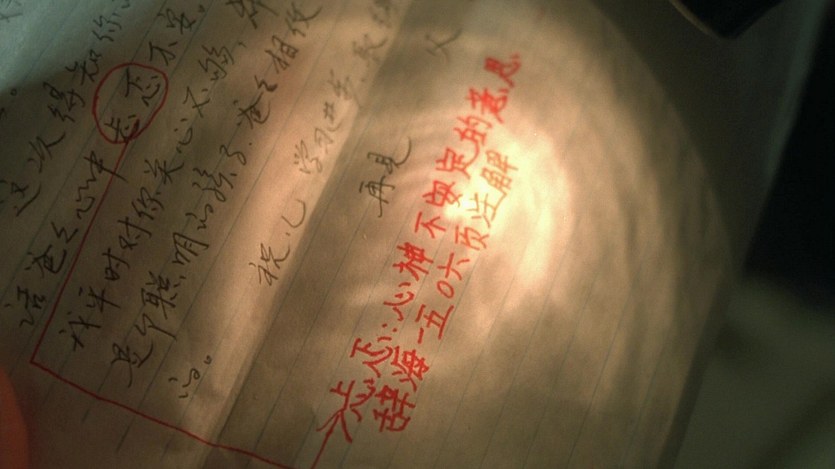 这次得知你
爸爸心中忐忑不安。
我平时对你关心不够,
是个聪明的孩子.爸爸相信
祝心 学习进步
再见
父
忐忑:心神不安定的意思
辞海一五〇六页注解